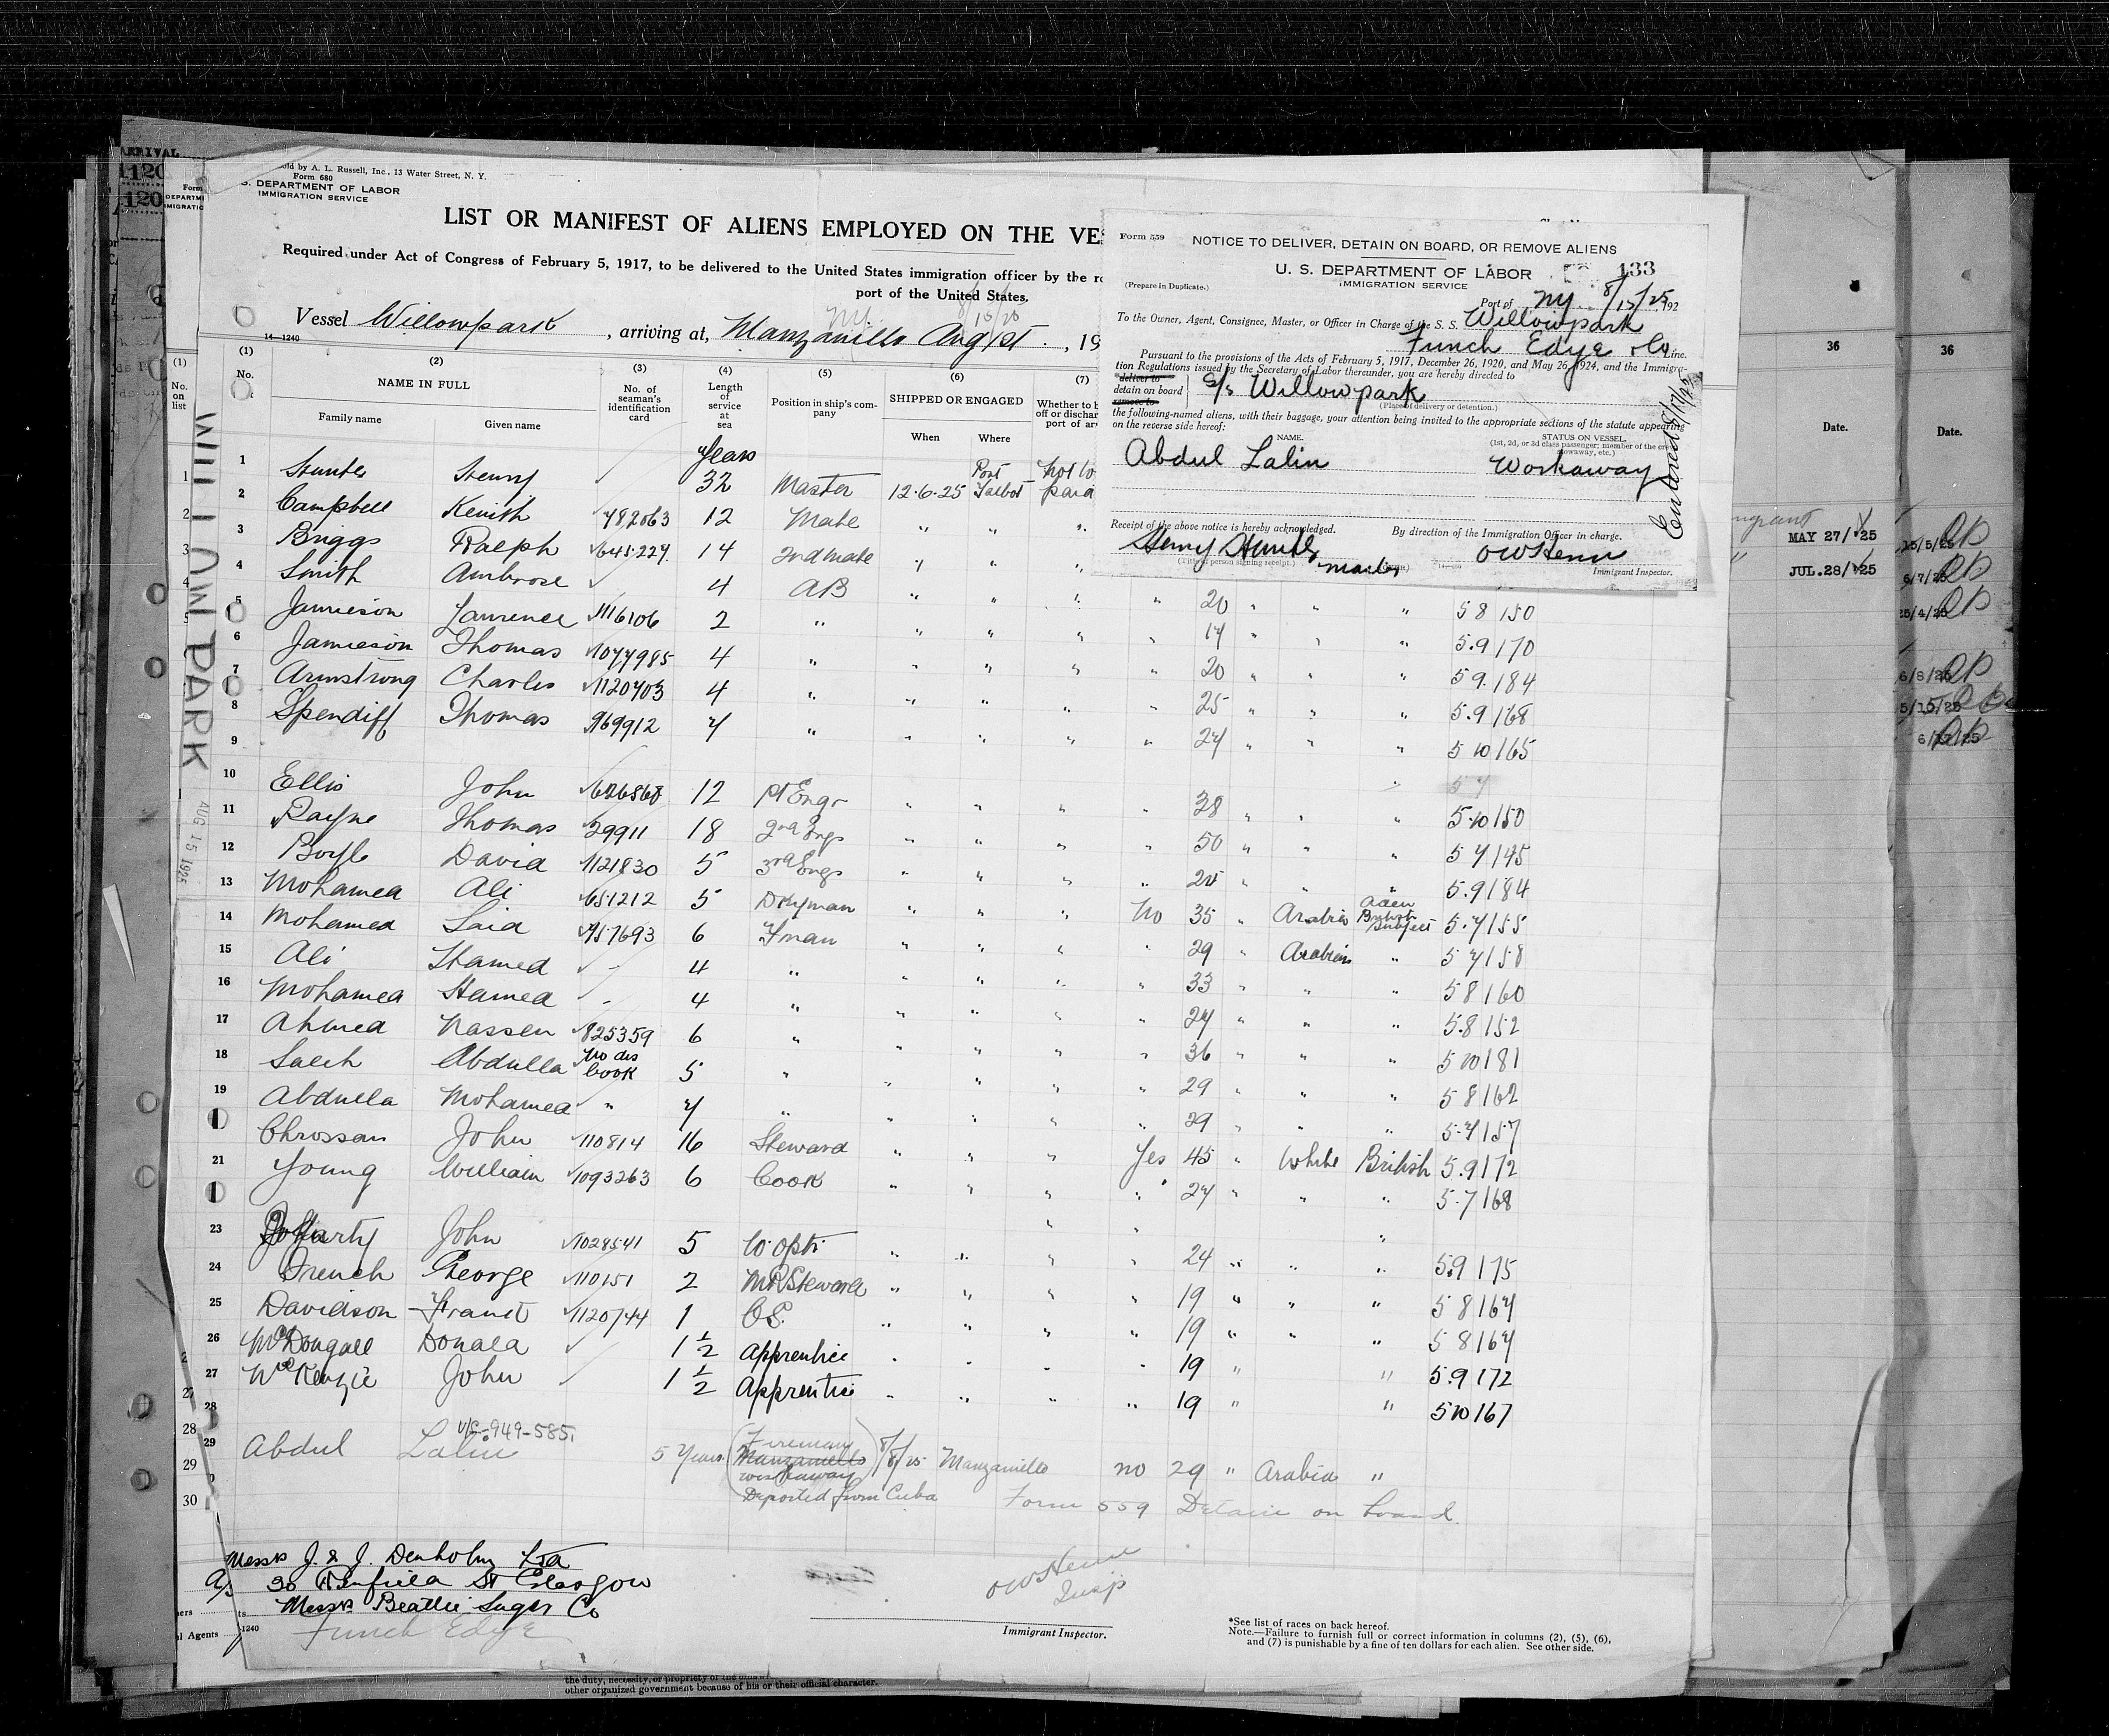 ARRIVAL
1120
1120
Sold by A. L. Russell, Inc., 13 Water Street, N. Y.
Form 680
S. DEPARTMENT OF LABOR
IMMIGRATION SERVICE
LIST OR MANIFEST OF ALIENS EMPLOYED ON THE VES
Required under Act of Congress of February 5, 1917, to be delivered to the United States immigration officer by the re
port of the United States.
Vessel Willowpark, arriving at, Manzanillo Aug 1st, 19
NY. 8/15/25
14—1240
(1) No. on list
(1) No.
(2) NAME IN FULL
Family name Given name
(3) No. of seaman's identification card
(4) Length of service at sea
(5) Position in ship's company
(6) SHIPPED OR ENGAGED
When Where
(7) Whether to b off or dischar port of arr
Years
1 Hunter Henry 32 Master 12.6.25 Port Talbot Not to paid
2 Campbell Kenith 782063 12 Mate " " "
3 Briggs Ralph 645227 14 2nd Mate " " "
4 Smith Ambrose 4 AB " " " " 20 " " " 5 8 150
5 Jamieson Laurence 1116106 2 " " " " " 17 " " " 5.9 170
6 Jamieson Thomas 1077985 4 " " " " " 20 " " 5 9.184
7 Armstrong Charles 1120703 4 " " " " " 25 " " " 5.9 168
8 Spendiff Thomas 969912 7 " " " " " 27 " " " 5 10 165
9
10 Ellis John 626868 12 1st Engr " " " 38 " " " 5.10 150
11 Payne Thomas 29911 18 2nd Engr " " " " 50 " " " 5 7 145
12 Boyle David 1121830 5 3rd Engr " " " " 25 " " " 5.9 184
13 Mohamed Ali 651212 5 Dkyman " " " No 35 " Arabia Aden British Subject 5.7 155
14 Mohamed Said 957693 6 Fman " " " " 29 " Arabian " 5 7 158
15 Ali Hamed 4 " " " " " 33 " " " 5 8 160
16 Mohamed Hamed 4 " " " " " 27 " " " 5.8 152
17 Ahmed Nassen 825359 6 " " " " " 36 " " " 5 10 181
18 Saleh Abdulla No dis book 5 " " " " " 29 " " " 5 8 162
19 Abdulla Mohamed " 7 " " " " " 29 " " " 5.7 157
Chrossan John 110814 16 Steward " " " Yes 45 " White British 5.9 172
21 Young William 1093263 6 Cook " " " " 27 " " " 5.7 168
23 John 1028541 5 W. Optr " " " " 24 " " " 5.9 175
24 French George 110151 2 M R Steward " " " " 19 " " " 5 8 167
25 Davidson Franct 1120744 1 O.S. " " " " 19 " " " 5 8 167
26 McDougall Donald 1½ Apprentice " " " " 19 " " 5.9 172
27 McKenzie John 1½ Apprentice " " " " 19 " " 5 10 167
28
29 Abdul Lalin 949-585. 5 Years (Fireman Manzanillo workaway) 8/8/25 Manzanillo no 29 " Arabia "
30 Deported from Cuba Form 559 Detain on board.
Messrs J. & J. Denholm Ltd
A/s 30 Renfield St Glasgow
Messrs Beattie Sugar Co
Funch Edye
l Agents
1240
OW Henn
Insp
Immigrant Inspector.
*See list of races on back hereof.
Note.—Failure to furnish full or correct information in columns (2), (5), (6),
and (7) is punishable by a fine of ten dollars for each alien. See other side.
WILLOW PARK
AUG 15 1925
Form 559
NOTICE TO DELIVER, DETAIN ON BOARD, OR REMOVE ALIENS
U. S. DEPARTMENT OF LABOR
IMMIGRATION SERVICE
133
(Prepare in Duplicate.)
Port of NY 8/15/25, 192
To the Owner, Agent, Consignee, Master, or Officer in Charge of the S. S. Willowpark
Funch Edye & Co Line.
Pursuant to the provisions of the Acts of February 5, 1917, December 26, 1920, and May 26, 1924, and the Immigra-
tion Regulations issued by the Secretary of Labor thereunder, you are hereby directed to
*deliver to
detain on board
remove to
S/s Willowpark
(Place of delivery or detention.)
the following-named aliens, with their baggage, your attention being invited to the appropriate sections of the statute appearing
on the reverse side hereof:
NAME. STATUS ON VESSEL.
(1st, 2d, or 3d class passenger; member of the crew; stowaway, etc.)
Abdul Lalin Workaway
Receipt of the above notice is hereby acknowledged. By direction of the Immigration Officer in charge.
Henry Hunter OW Henn
(Title of person signing receipt.) Master Immigrant Inspector.
36
Date.
MAY 27/25
JUL. 28/25
36
Date.
the duty, necessity, or propriety of the
other organized government because of his or their official character.